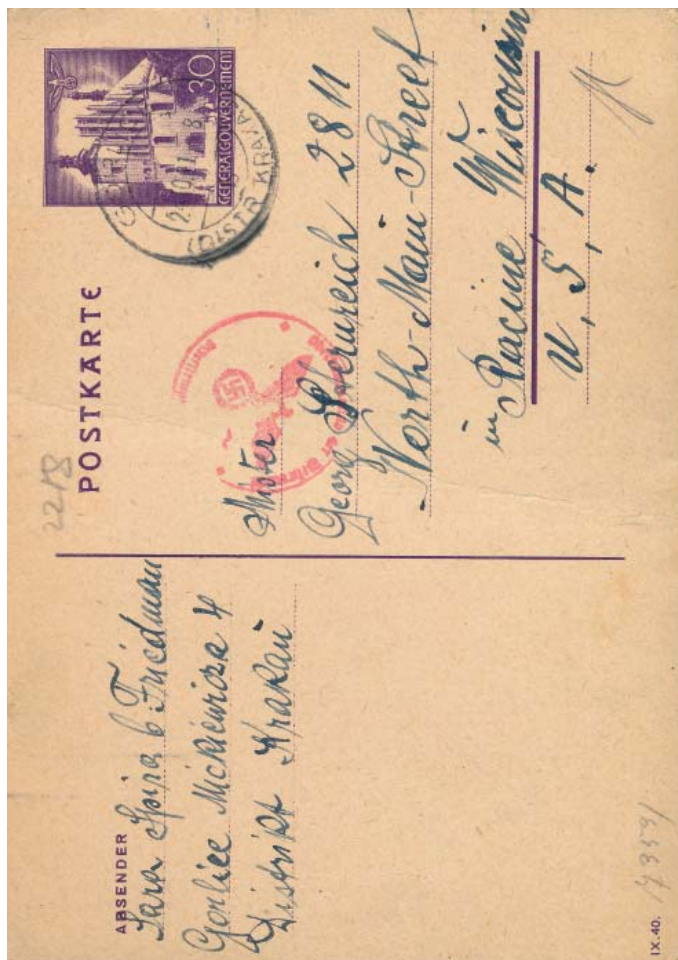 POSTKARTE
2218
GENERALGOUVERNEMENT
30
ABSENDER
Sara Spira b Friedman
Gorlice Mickiewicza 4
Distrikt Krakau
Mister
Georg Sternreich 2811
North-Main-Street
in Racine Wisconsin
U. S. A.
IX.40.